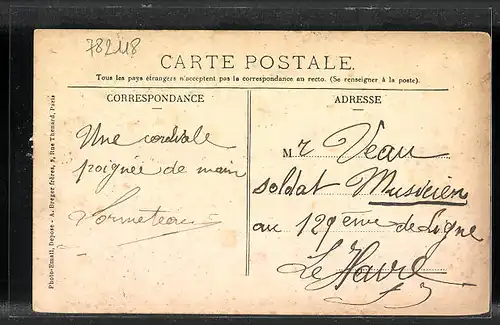 78248
CARTE POSTALE.
Tous les pays étrangers n'acceptent pas la correspondance au recto. (Se renseigner à la poste).
CORRESPONDANCE
Une cordiale
poignée de main
ADRESSE
Mr Veau
soldat Musicien
au 129eme de Ligne
Le Havre
Photo-Email, Déposé - A. Breger frères, 9, Rue Thénard, Paris